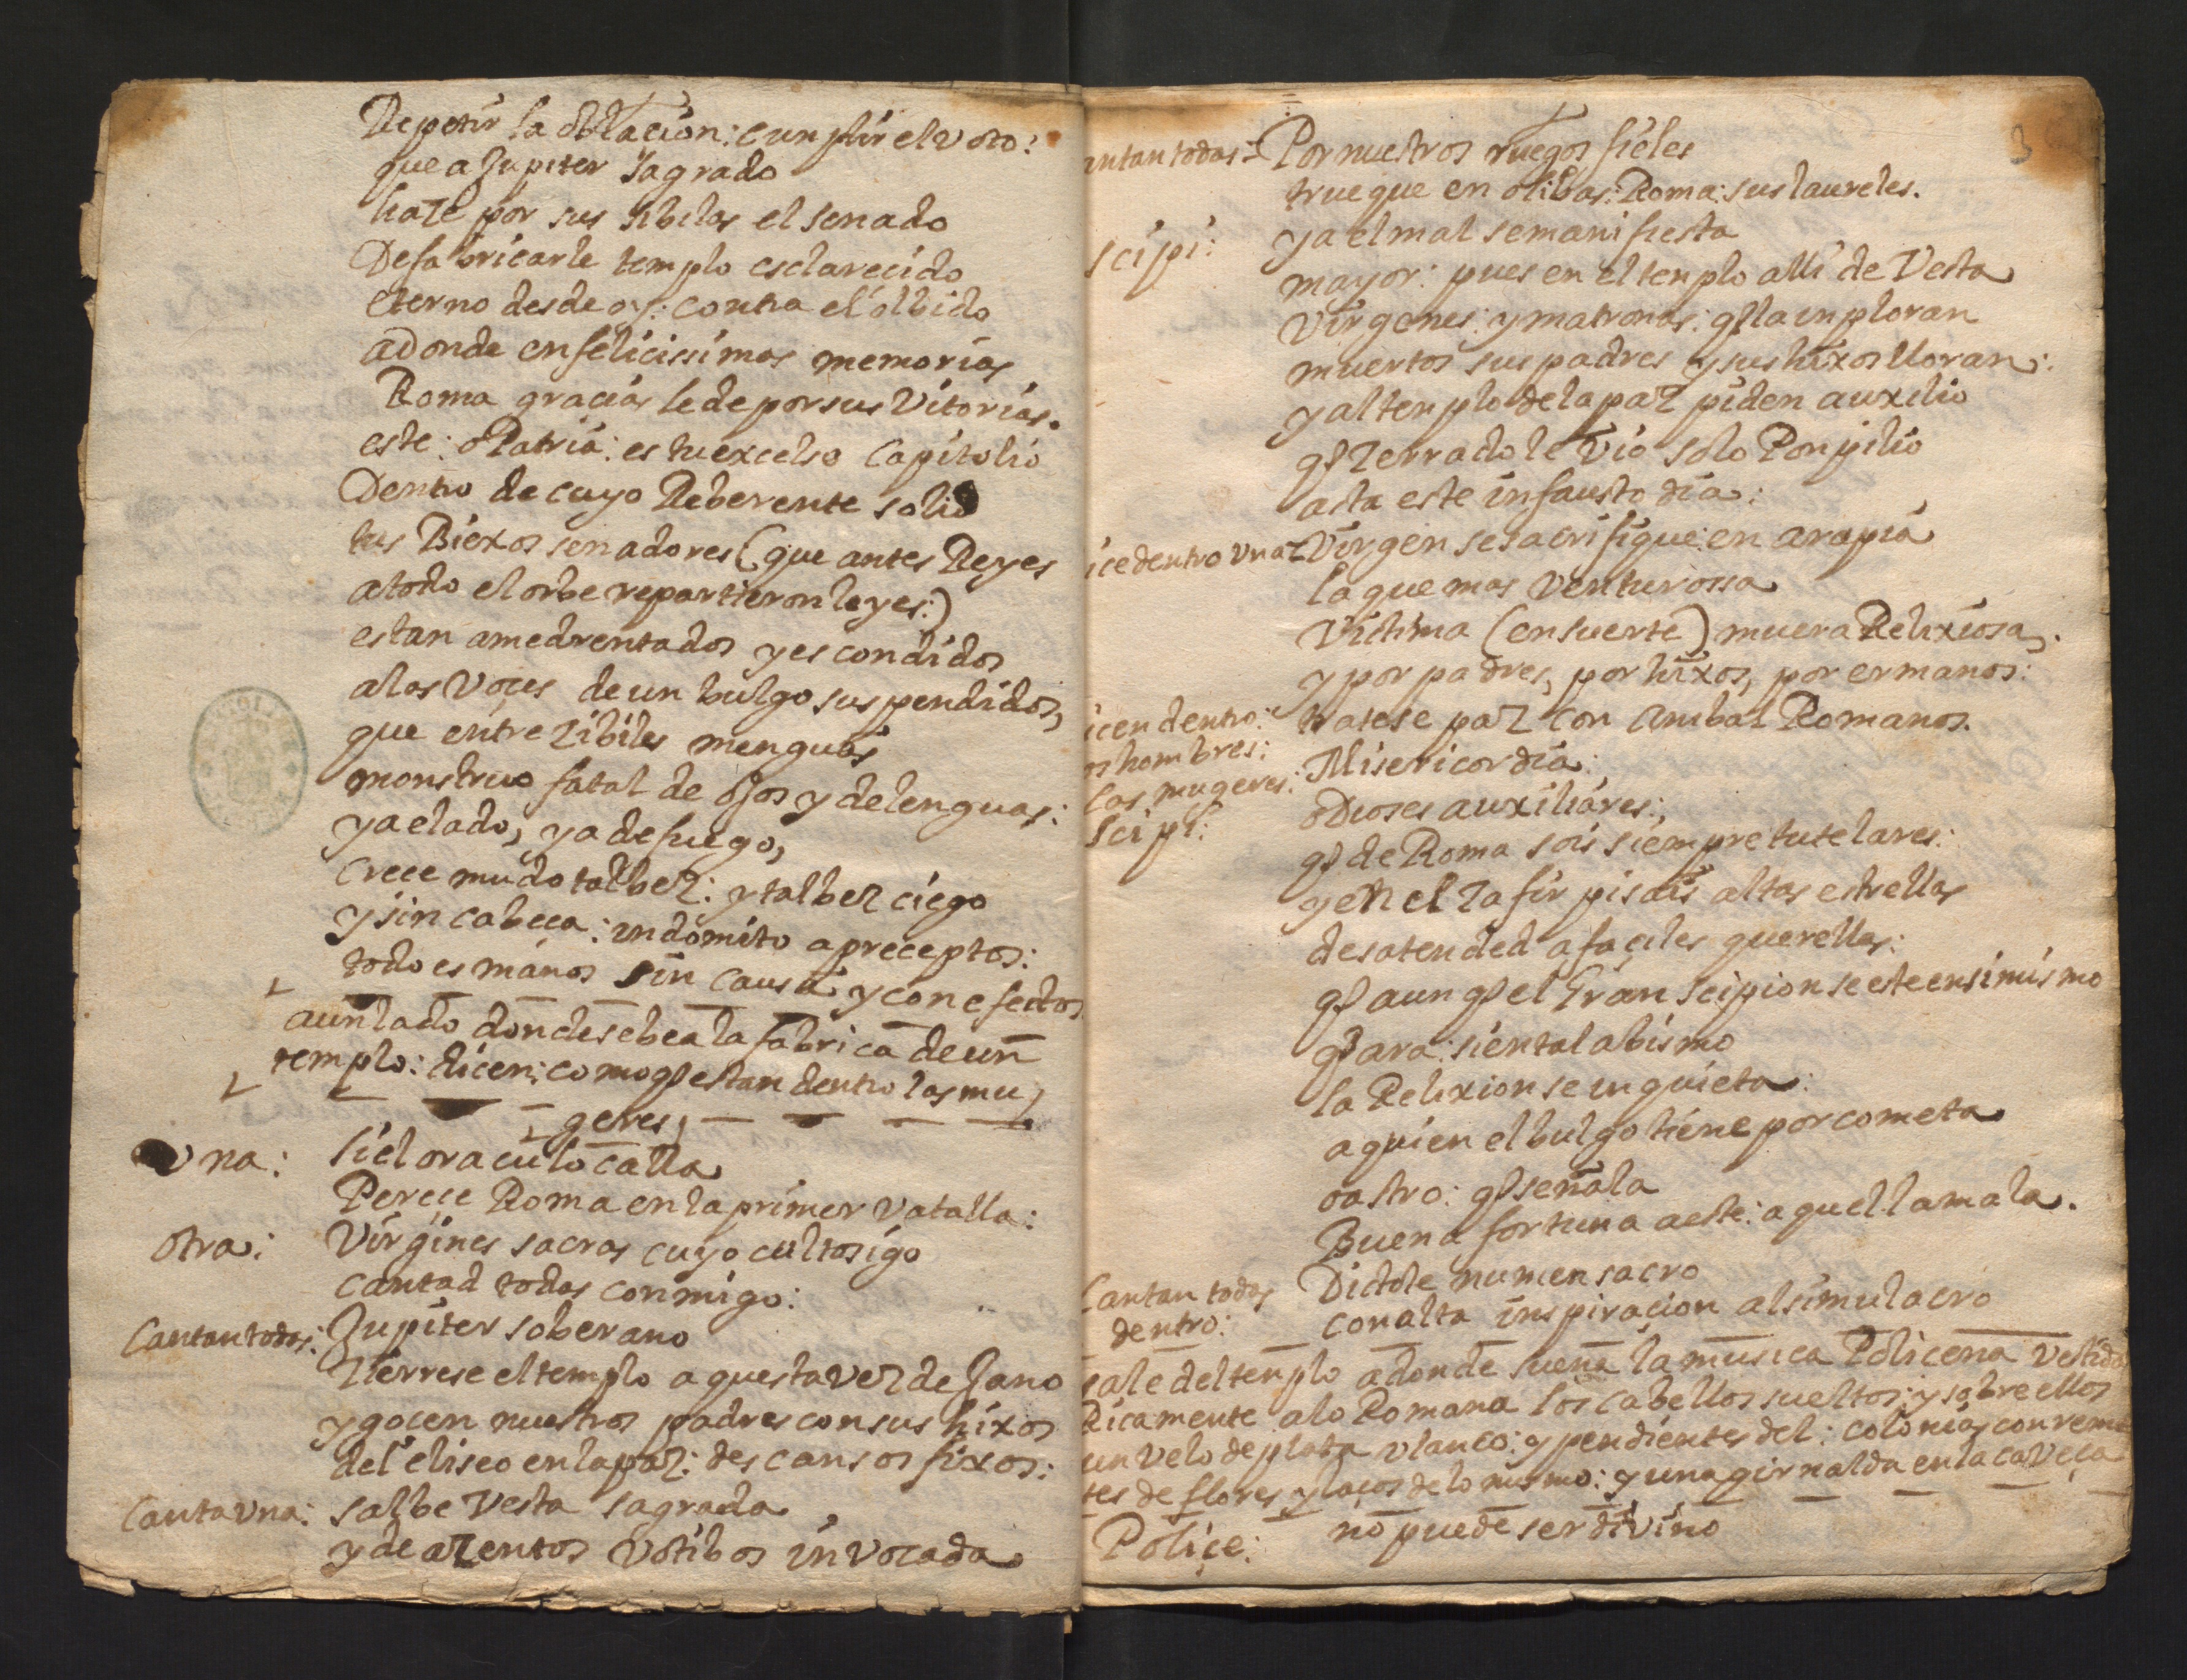 Repetir la oblacion: cunplir el voto:
que a Jupiter sagrado
haze por sus sibilas el senado
De fabricarle templo esclarecido
eterno desde oy: contra el olbido
adonde en felicissimas memorias
Roma gracias le de por sus Vitorias.
este: o Patria: es tu excelso Capitolio
Dentro de cuyo Reberente solio
tus Biexos senadores (que antes Reyes
a todo el orbe repartieron leyes:)
estan amedrentados y escondidos
a las Voçes de un bulgo suspendidos,
que entre zibiles menguas
monstruo fatal de ojos y de lenguas:
ya elado, ya de fuego,
Crece mudo talbez: y talbez ciego
y sin cabeca: indomito a preceptos:
todo es manos sin causa: y con efectos
a un lado donde se bea la fabrica de un
templo: dicen: como q estan dentro las mu
geres,
Vna: si el oraculo calla
Pereçe Roma en la primer vatalla:
Otra: Virgines sacras cuyo culto sigo
Cantad todas conmigo:
Cantan todas: Jupiter soberano
zierrese el templo aquesta vez de Jano
y gocen nuestros padres con sus hixos
del eliseo en la paz: descansos fixos:
Canta Vna: salbe Vesta sagrada
y de azentos Votibos invocada
3
antan todas= Por nuestros ruegos fieles
trueque en olibas: Roma: sus laureles.
scipi: ya el mal se manifiesta
mayor: pues en el tenplo alli de Vesta
Virgenes: y matronas: q la inploran
muertos sus padres y sus hixos lloran:
y al tenplo de la paz piden auxilio
q zerrado le vio solo Ponpilio
asta este infausto dia:
ice dentro una= Virgen se sacrifique: en ara pia
la que mas Venturossa
Victima (en suerte) muera Relixiosa,
y por padres, por hixos, por ermanos:
tratese paz con Anibal Romanos.
icen dentro:
os hombres: Misericordia:
las mugeres: o Dioses auxiliares:,
scipi: q de Roma sois siempre tutelares:
y en el zafir pisais altas estrellas
desatended a façiles querellas:
q aun q el gran Scipion se este en si mismo
q ara: sienta el abismo
la Relixion se inquieta:
a quien el bulgo tiene por cometa
o astro: q señala
Buena fortuna a este: a quel la mala.
Cantan todas Dictole numen sacro
dentro: con alta inspiraçion al simulacro
sale del tenplo adonde suena la musica Policena Vestida
Ricamente a lo Romana los cabellos sueltos: y sobre ellos
un velo de plata vlanco: y pendientes del: colonias con rema
tes de flores y laços de lo mismo: y una girnalda en la caVeça
Poliçe: no puede ser diVino